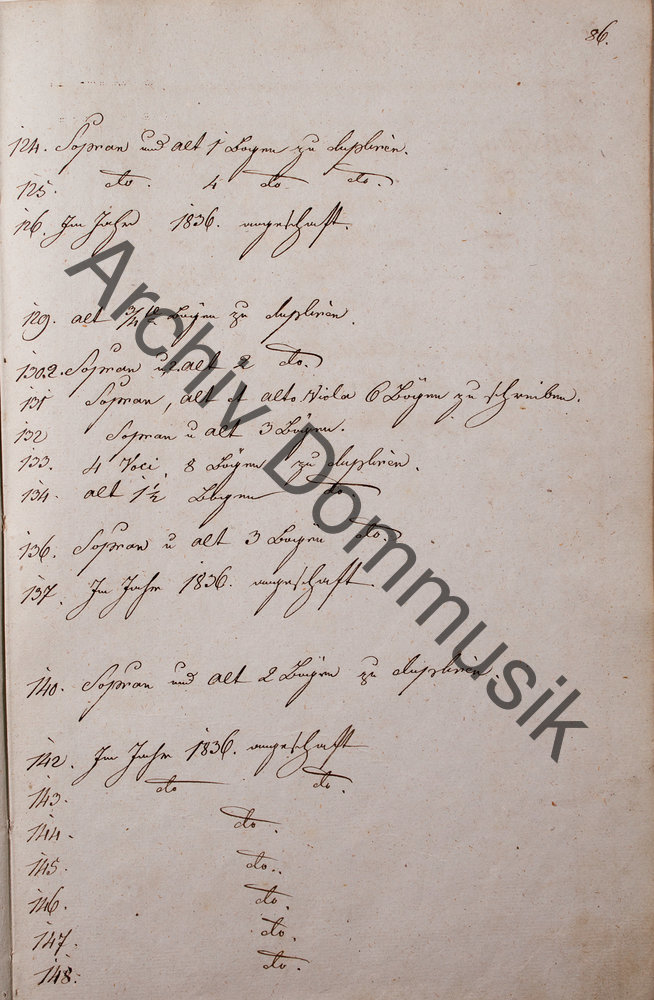 86.
124. Sopran und alt 1 Bogen zu dupliren.
125. do. 4 do do.
126. Im Jahr 1836. angeschaft.
129. alt 3/4 Bögen zu dupliren.
130. 2. Sopran u. 2. alt 2 do.
131 Sopran, alt et alto Viola 6 Bögen zu schreiben.
132 Sopran u alt 3 Bögen.
133. 4 Voci, 8 Bögen zu dupliren.
134. alt 1 1/2 Bogen do.
136. Sopran u alt 3 Bögen do.
137. Im Jahr 1836. angeschaft.
140. Sopran und alt 2 Bögen zu dupliren.
142. Im Jahr 1836. angeschaft
143. do do.
144. do.
145. do..
146. do.
147. do.
148. do.
Archiv Dommusik